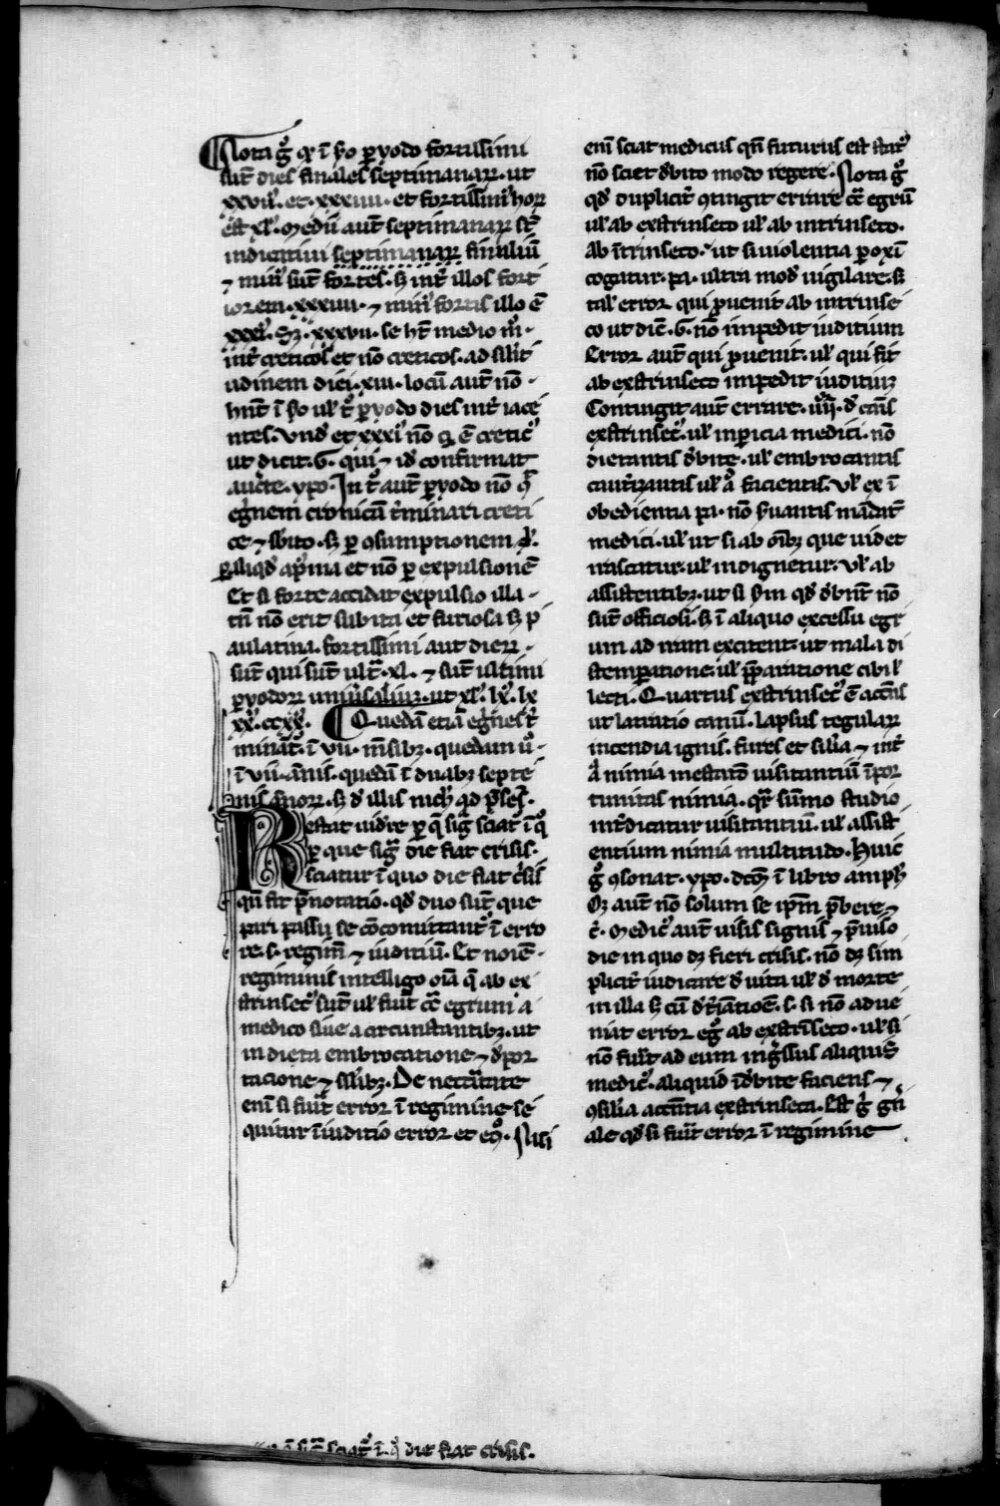 ¶ Nota g̊ ꝙ ĩ s̃o ꝑyodo fortissimi
sũt dies finales septimanaꝝ. ut
xxvii. et. xxxiiii. et fortissim' hoꝝ
est xl. Medii aũt septimanaꝝ st̃
indicatiui septimanaꝝ similiũ
⁊ min' sũt fortes. sꝫ int̃ illos forti
orem. xxxiiii. ⁊ min' fortis illo ẽ
xxxi. Sꝫ. xxxvii. se hꝫ medio m̊.
int̃ creticos et nõ creticos. ad silit
udinem diei. xiii. locũ aũt nõ
hñt ĩ s̃o ul' t̃ ꝑyodo dies int̃ iace
ntes. Vnd' et xxxi nõ ẽ cretic'
ut dicit. G. qui ⁊ id' confirmat
aucte. ypo. In t̃ aũt ꝑyodo nõ
egr̃nem cronicũ t̃minari creti
ce ⁊ sb̃ito. sꝫ ꝑ ꝯsumptionem
et nõ ꝑ expulsionẽ
Et si forte accidat expulsio illa
tñ nõ erit subita et furiosa sꝫ p
aulatina. fortissimi aut dieꝝ
sũt qui sũt ult̃. xl. ⁊ sũt ultimi
ꝑyodoꝝ uniũsaliuꝫ. ut xl. lx. lx
xx. cxx. ¶ Quedã etiã egr̃nes t̃
minãt. ĩ vii. m̃sibꝫ. quedam u̾
ĩ vii. annis. quedã ĩ duabꝫ septe
nis annoꝝ. sꝫ d' illis nich' ad p̃sẽs.
Restat uid'e ꝑ q̃ sig̃ sciat' ĩ q̊
ꝑ que sig̃ die fiat crisis.
sciatur ĩ quo die fiat c̃sis
qñ fit p̃notatio. qd' duo sũt que
pari passu se cõcomittant' ĩ erro
re. s. regim̃ ⁊ iuditiũ. Et noiẽ
regiminis intelligo oĩa q̃ ab ex
trinsec' sũt ul' fiũt c̃c egrum a
medico siue a circunstantibꝫ. ut
in dieta embrocatione ⁊ d'por
tacione ⁊ sl'ibꝫ. De necc̃itate
enĩ si fu'it error ĩ regimine se
quitur ĩ iuditio error et eꝯ. Nisi
enĩ sciat medicus qñ futurus est stat'
nõ sciet d'bito modo regere. Nota g̊
qd' duplicit' ꝯtingit errare c̃c egrũ
ul' ab extrinseco ul' ab intrinseco.
Ab ĩtrinseco. ut si uiolentia paroxĩ
cogatur. pa. ultra mod' uigilare. s
tal' error qui ꝓuenit ab intrinse
co ut diẽ. G. nõ impedit iuditium
Error aũt qui ꝓuenit. ul' qui fit
ab extrinseco impedit iudituiꝫ
Contingit aũt errare. iiii. d' cãis
extrinsec'. ul' inꝑicia medici. nõ
dietantis d'bite. ul' embrocantis
caut'izantis ul' a' facientis. Ul' ex ĩ
obedientia pa. nõ s'uantis mãdat'
medici. ul' ut si ab oĩbꝫ que uidet
irascatur. ul' indignetur. Ul' ab
assistentibꝫ. ut si s̃m qd' d'bñt nõ
sũt officiosi. sꝫ ĩ aliquo excessu egr
um ad iram excitent. ut mala di
stemperatione. ul' p̃paratione cibi ul'
lecti. Quartus extrinsec' ẽ acc̃ns
ut latratio canũ. lapsus tegulaꝝ
incendia ignis. fures et sil'ia ⁊ int̃
a' nimia inestatõ uisitantiũ ĩpor
tunitas nimia. qr̃ sũmo studio
int̃dicatur uisitantiũ. ul' assist
entium nimia multitudo. Huic
g̊ ꝯsonat. ypo. dicẽs ĩ libro amph'
Oꝫ aũt nõ solum se ip̃m p̃bere ⁊
c̃. Medic' aũt uisis signis ⁊ p̃uiso
die in quo dꝫ fieri crisis. nõ dꝫ sim
plicit' iudicare d' uita ul' d' morte
in illa sꝫ cũ d't̃iatiõe. s. si nõ adue
niat error eg̊ ab extrĩseco. ul' si
nõ fu'it ad eum ing̃ssus aliquis
medic'. aliquid ĩd'bite faciens ⁊
ꝯsilia accñtia extrinseca. Est g̊ gñ
ale qd' si fu'it error ĩ regimine
sciat' ĩ. q̊ die fiat crisis.